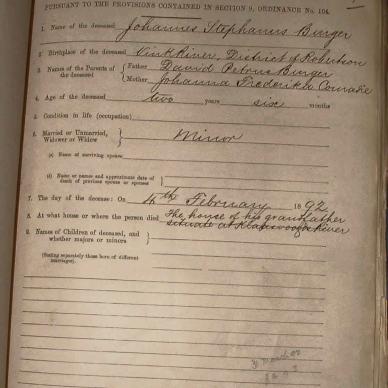 PURSUANT TO THE PROVISIONS CONTAINED IN SECTION 9, ORDINANCE No. 104.
1. Name of the deceased Johannes Stephanus Burger
2. Birthplace of the deceased Vink River, District of Robertson
3. Names of the Parents of the deceased } Father David Petrus Burger
Mother Johanna Frederika Conradie
4. Age of the deceased two years six months
5. Condition in life (occupation)
6. Married or Unmarried, Widower or Widow } Minor
(a) Name of surviving spouse
(b) Name or names and approximate date of death of previous spouse or spouses }
7. The day of the decease: On 4th February 1892
8. At what house or where the person died The house of his grandfather
situate at River
9. Names of Children of deceased, and whether majors or minors }
(Stating separately those born of different marriages).